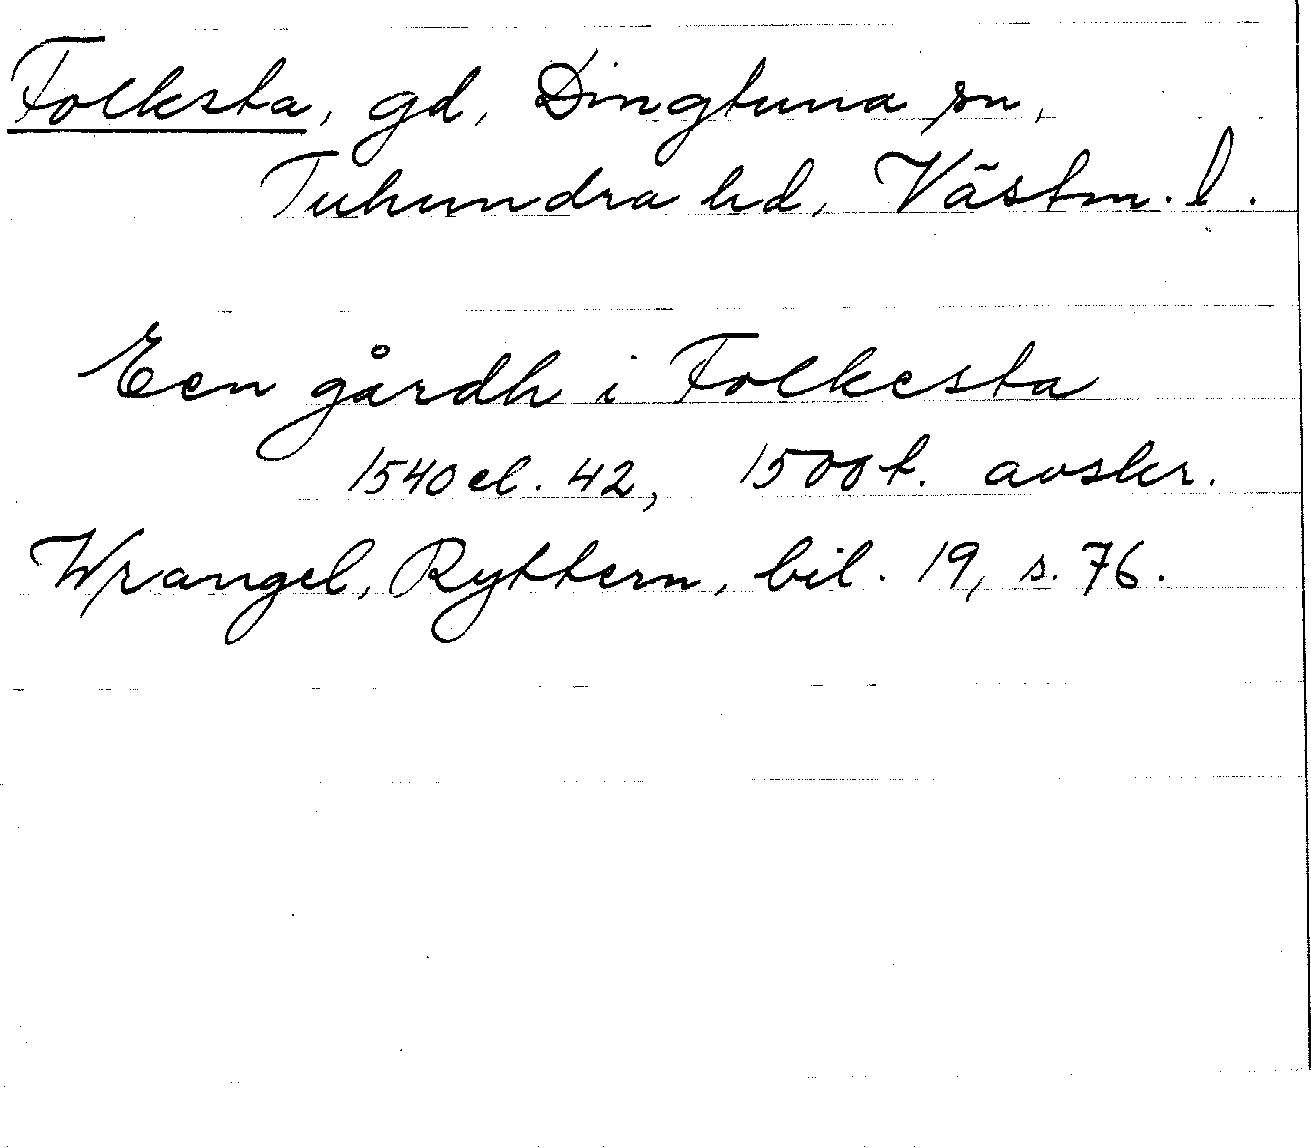 Folksta, gd, Dingtuna sn,
Tuhundra hd, Västm. l.
Een gårdh i Folkesta
1540 el. 42, 1500t. avskr.
Wrangel, Ryttern, bil. 19, s. 76.